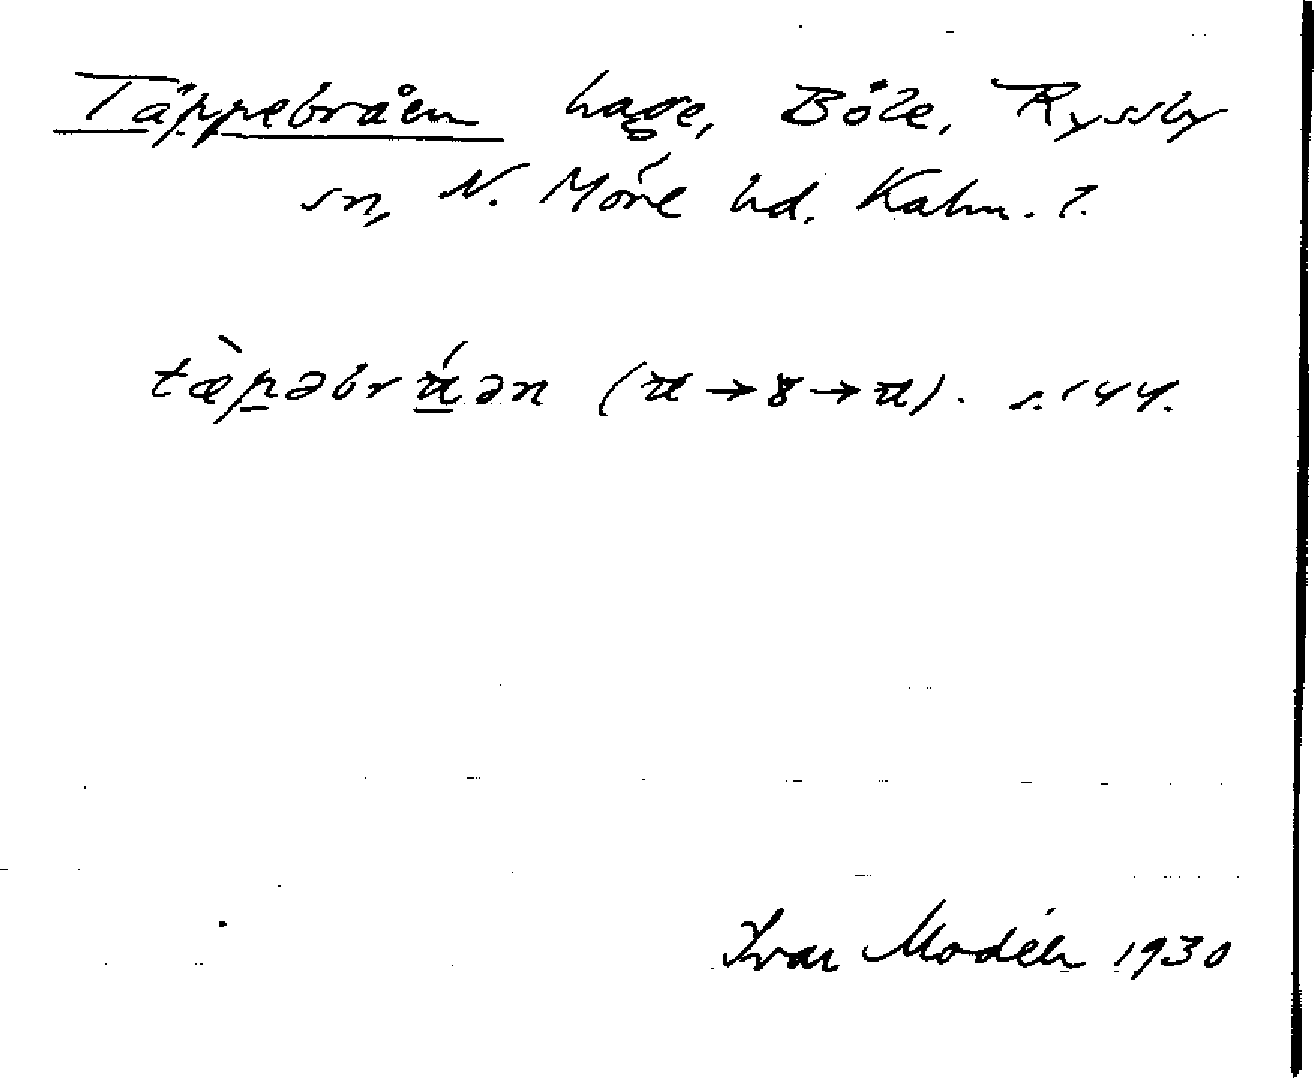 Täppebråen hage, Böle, Ryssby
sn, N. Möre hd. Kalm. l.
tæ̀pəbrá̤ən ( → 8 → ). s. 144.
Ivar Modéer 1930